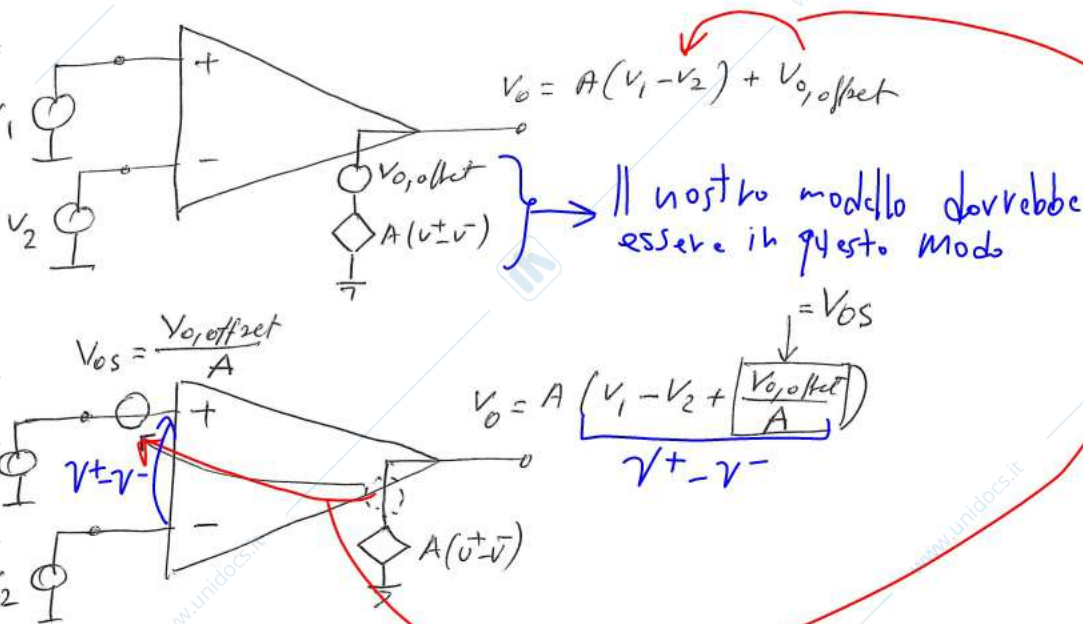 +
V₀ = A(V₁ - V₂) + V₀,offset
V₁
-
V₀,offset
Il nostro modello dovrebbe
V₂
A(v⁺-v⁻)
essere in questo modo
= V₀S
V₀S = V₀,offset / A
V₀ = A (V₁ - V₂ + V₀,offset / A)
+
v⁺-v⁻
v⁺-v⁻
-
A(v⁺-v⁻)
2
www.unidocs.it
www.unidocs.it